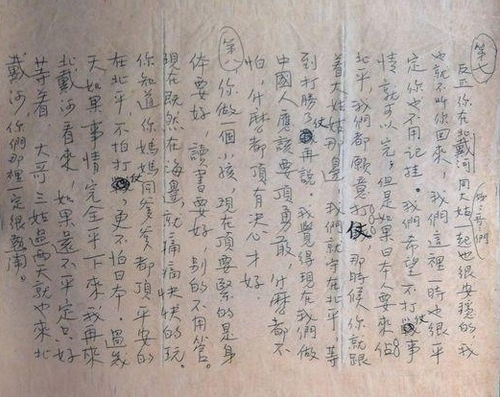 第七
反正你在北戴河同大姑一起也很安穩的我
哥們
也就不叫你回來。我們這裡一時也很平
定你也不用記挂。我們希望不打仗事
情就可以完;但是如果日本人要來佔
北平,我們都願意打仗,那時候你就跟
着大姑姑那邊,我們就守在北平,等
到打勝了仗再說。我覺得現在我們做
中國人應該要頂勇敢,什麼都不
怕,什麼都頂有決心才好.
第八,你做一個小孩,現在頂要緊的是身
体要好,讀書要好,別的不用管.
現在既然在海邊,就痛痛快快的玩.
你知道你媽媽同爹爹都頂平安的
在北平,不怕打仗,更不怕日本.過幾
天如果事情完全平下來,我再來
北戴河看你,如果還不平定,只好
等着.大哥三姑過兩天就也來北
戴河,你們那裡一定很熱鬧。